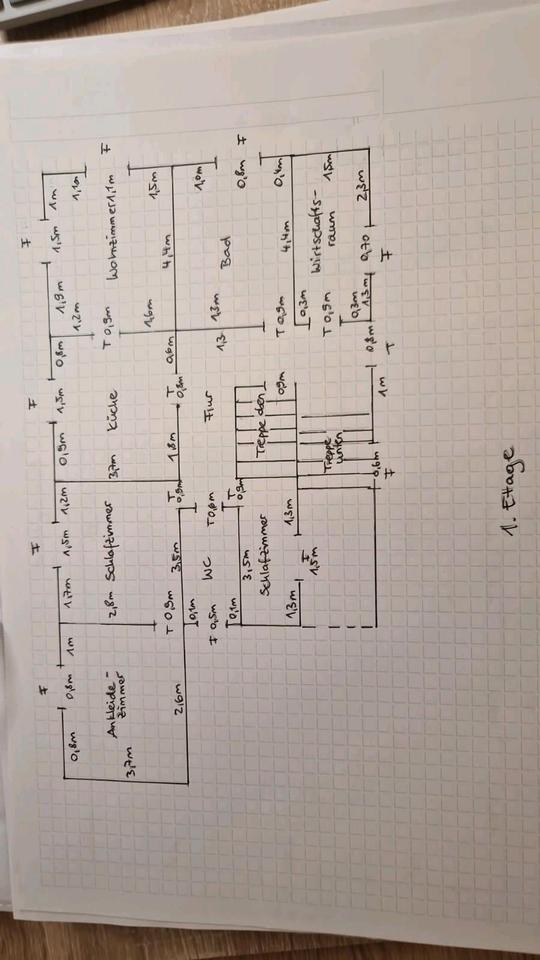 F F F F
0,8m 1m 1,7m 1,5m 1,2m 0,9m 1,5m 0,8m 1,9m 1,5m 1m
0,8m 1,2m 1,1m
Ankleide- 2,8m Schlafzimmer 3,7m Küche T 0,9m Wohnzimmer 1,1m F
zimmer
3,7m 1,6m 1,5m
T 0,9m 3,5m T 0,9m 1,8m T 0,8m 0,6m 4,4m
2,6m 0,1m 1,0m
WC Flur 1,3m
F 0,5m 1,3 Bad
0,1m 3,5m T 0,9m 0,8m F
Schlafzimmer Treppe oben T 0,9m 4,4m 0,4m
1,3m 1,3m 0,9m 0,3m
F Wirtschafts-
1,5m Treppe T 0,9m raum 1,5m
unten 0,3m
0,6m 1m 0,8m 1,3m 0,70 2,3m
F T F
1. Etage